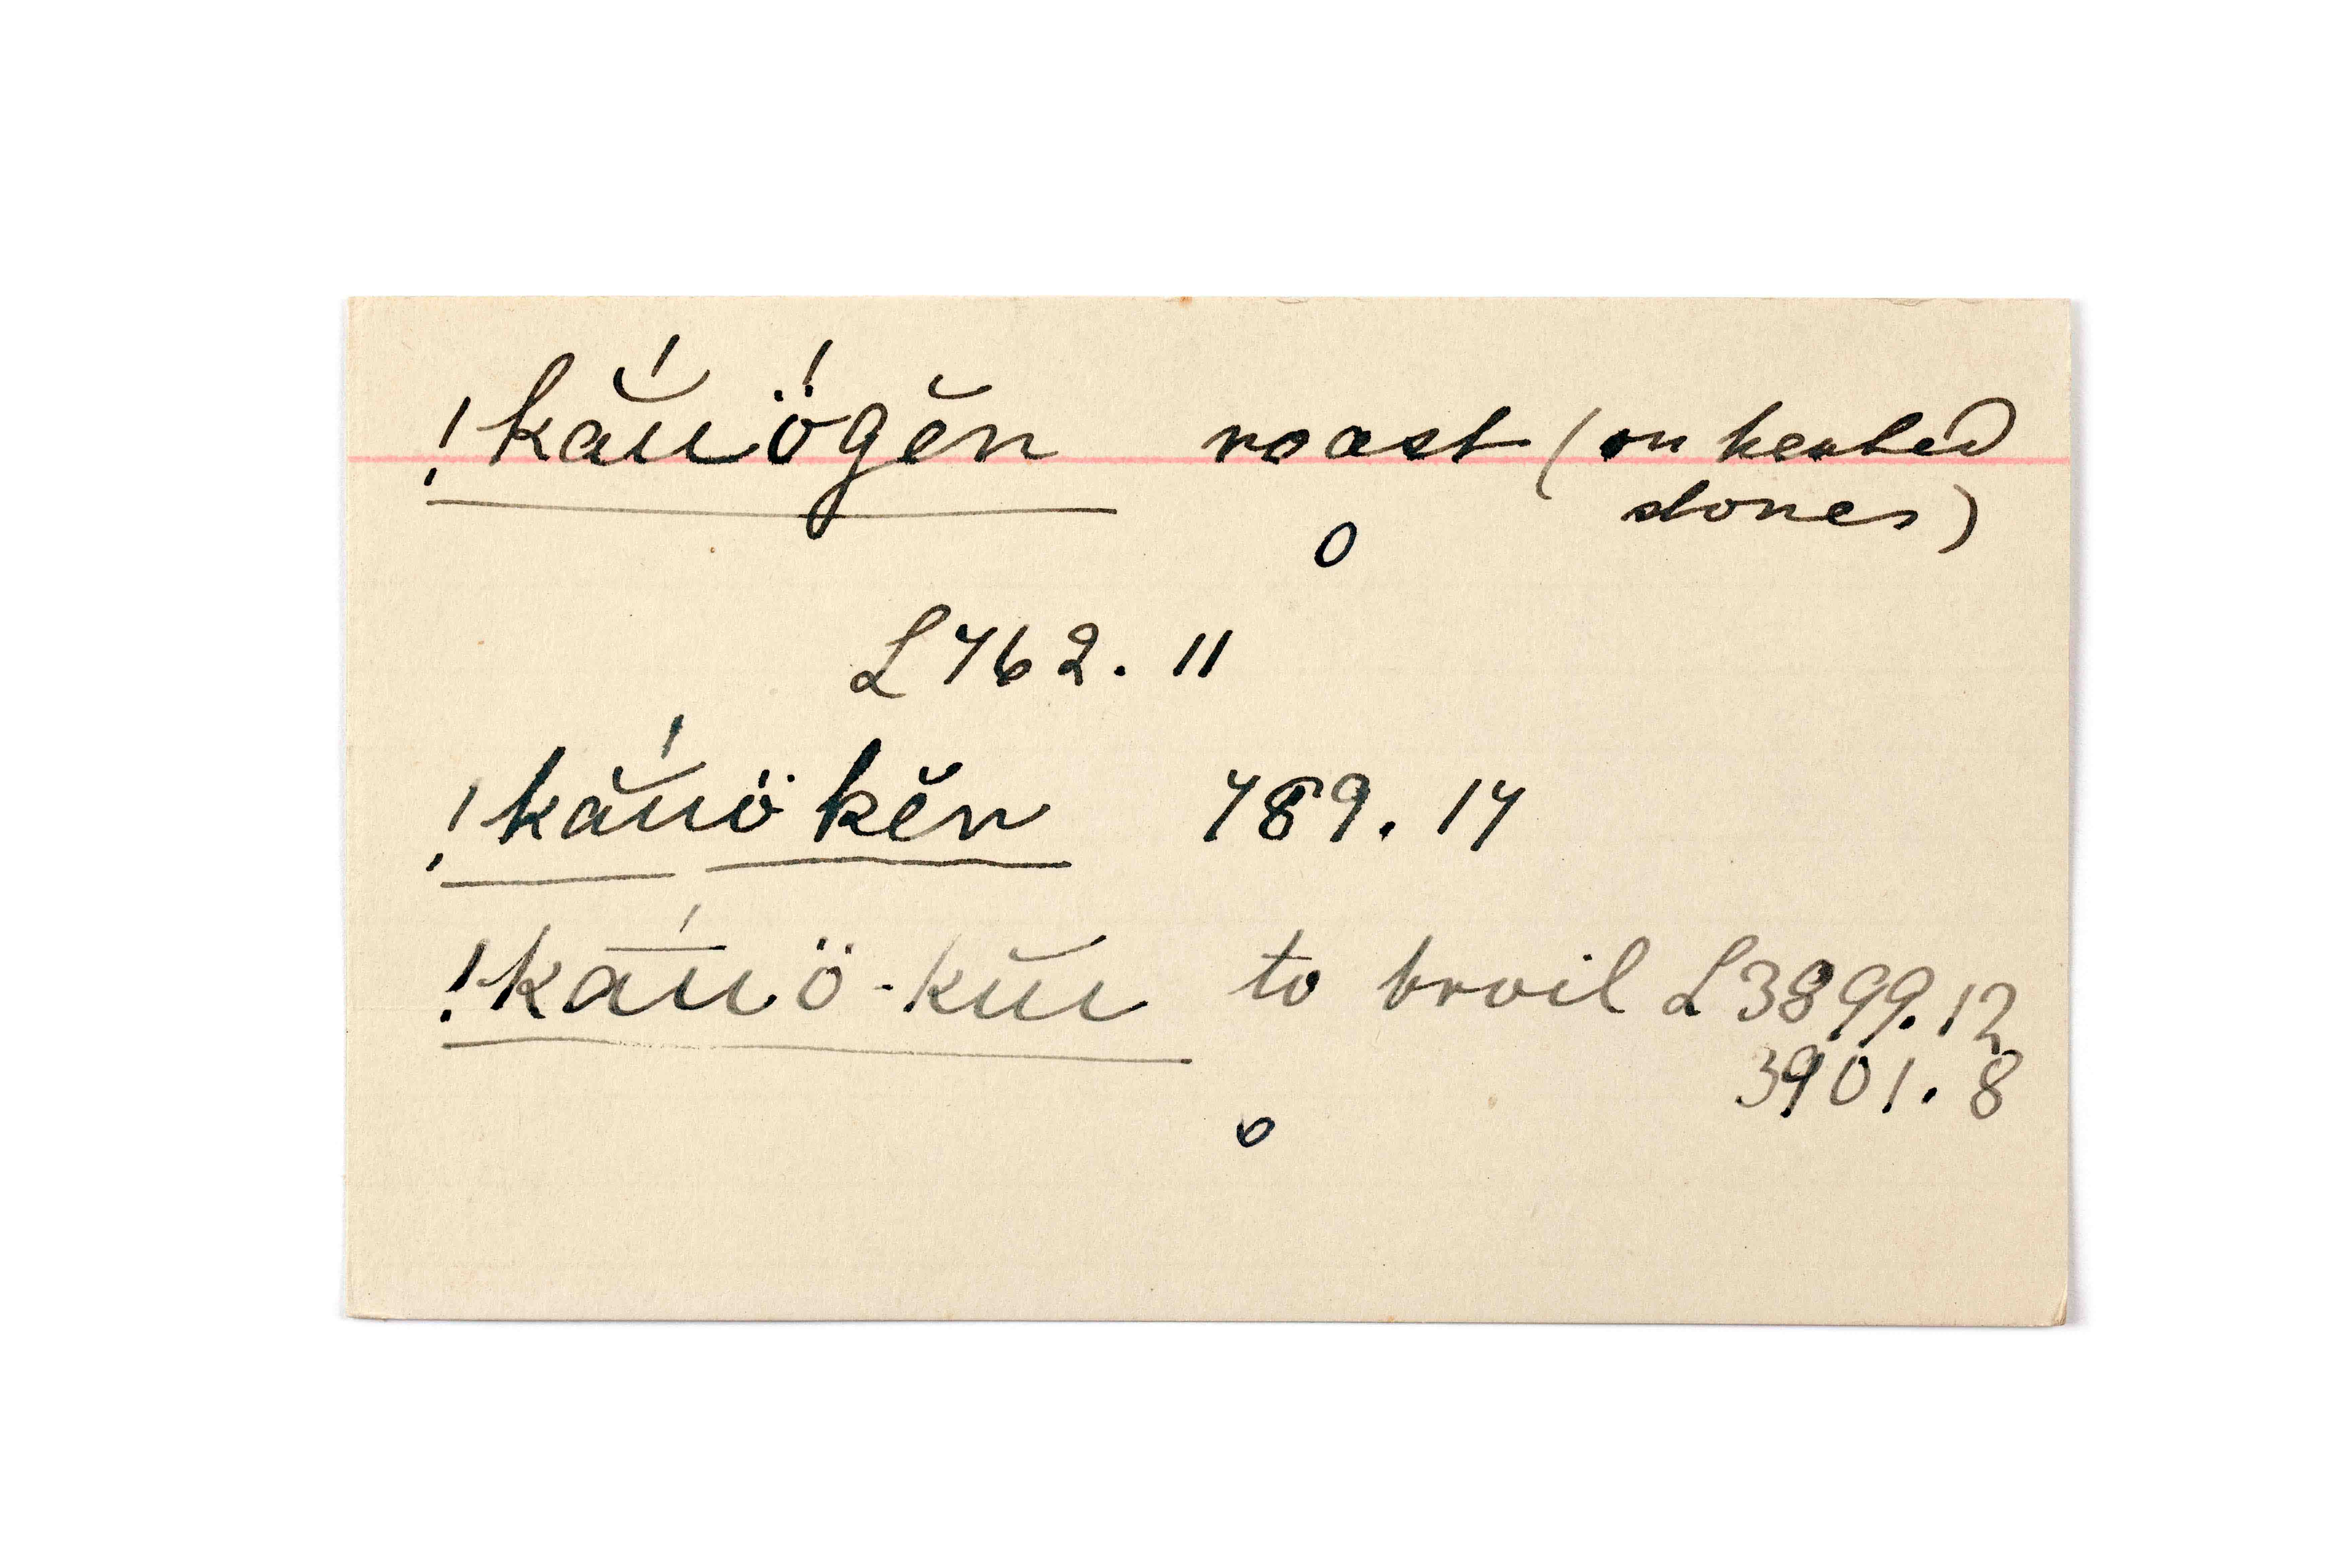 !kắuö́gĕn roast (on heated
stones)
0
L 762. 11
!kắuökĕn 789. 17
!kā́uö-kŭi to broil L 3899. 12
3901. 8
o